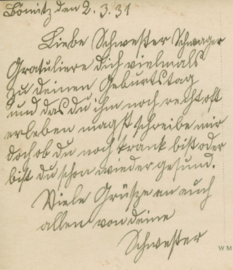 Bönitz den 2.3.31
Liebe Schwester Schwager
Gratuliere Dich vielmals
zu deinen Geburtstag
und das du ihm noch recht oft
erleben magst, schreibe mir
doch ob du noch krank bist oder
bist du schon wieder gesund.
Viele Grüsse an euch
allen von deine
Schwester
W M